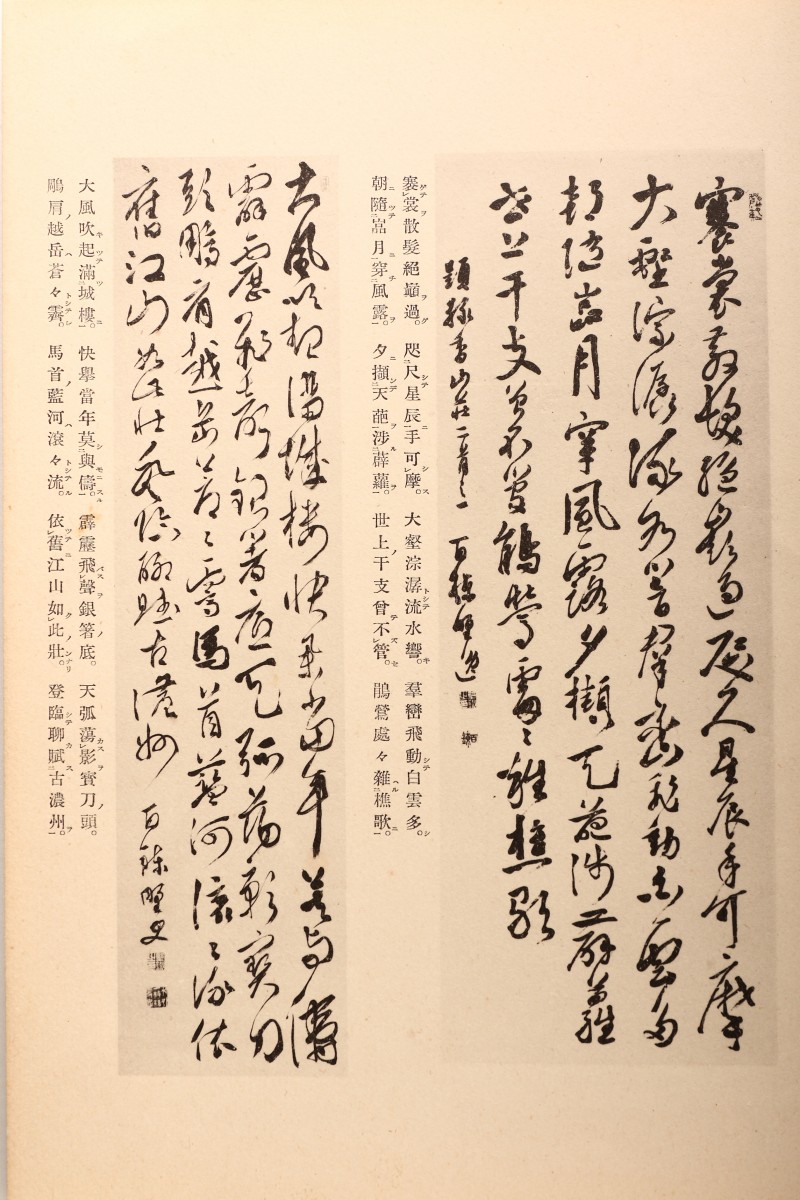 褰裳散髮絕巔過咫尺星辰手可摩
大壑淙潺流水響羣巒飛動白雲多
朝隨嵓月穿風露夕擷天葩涉薜蘿
世上干支曾不管鵑鶯處々雜樵歌
山莊二首之一
褰裳散髮絕巔過。咫尺星辰手可摩。大壑淙潺流水響。羣巒飛動白雲多。
朝隨嵓月穿風露。夕擷天葩涉薜蘿。世上干支曾不管。鵑鶯處々雜樵歌。
大風吹起滿城樓快擧當年莫與儔
霹靂飛聲銀箸底天弧蕩影寶刀
頭鵰肩越岳蒼々霽馬首藍河滾々流依
舊江山如此壯登臨聊賦古濃州 野史
大風吹起滿城樓。快擧當年莫與儔。霹靂飛聲銀箸底。天弧蕩影寶刀頭。
鵰肩越岳蒼々霽。馬首藍河滾々流。依舊江山如此壯。登臨聊賦古濃州。